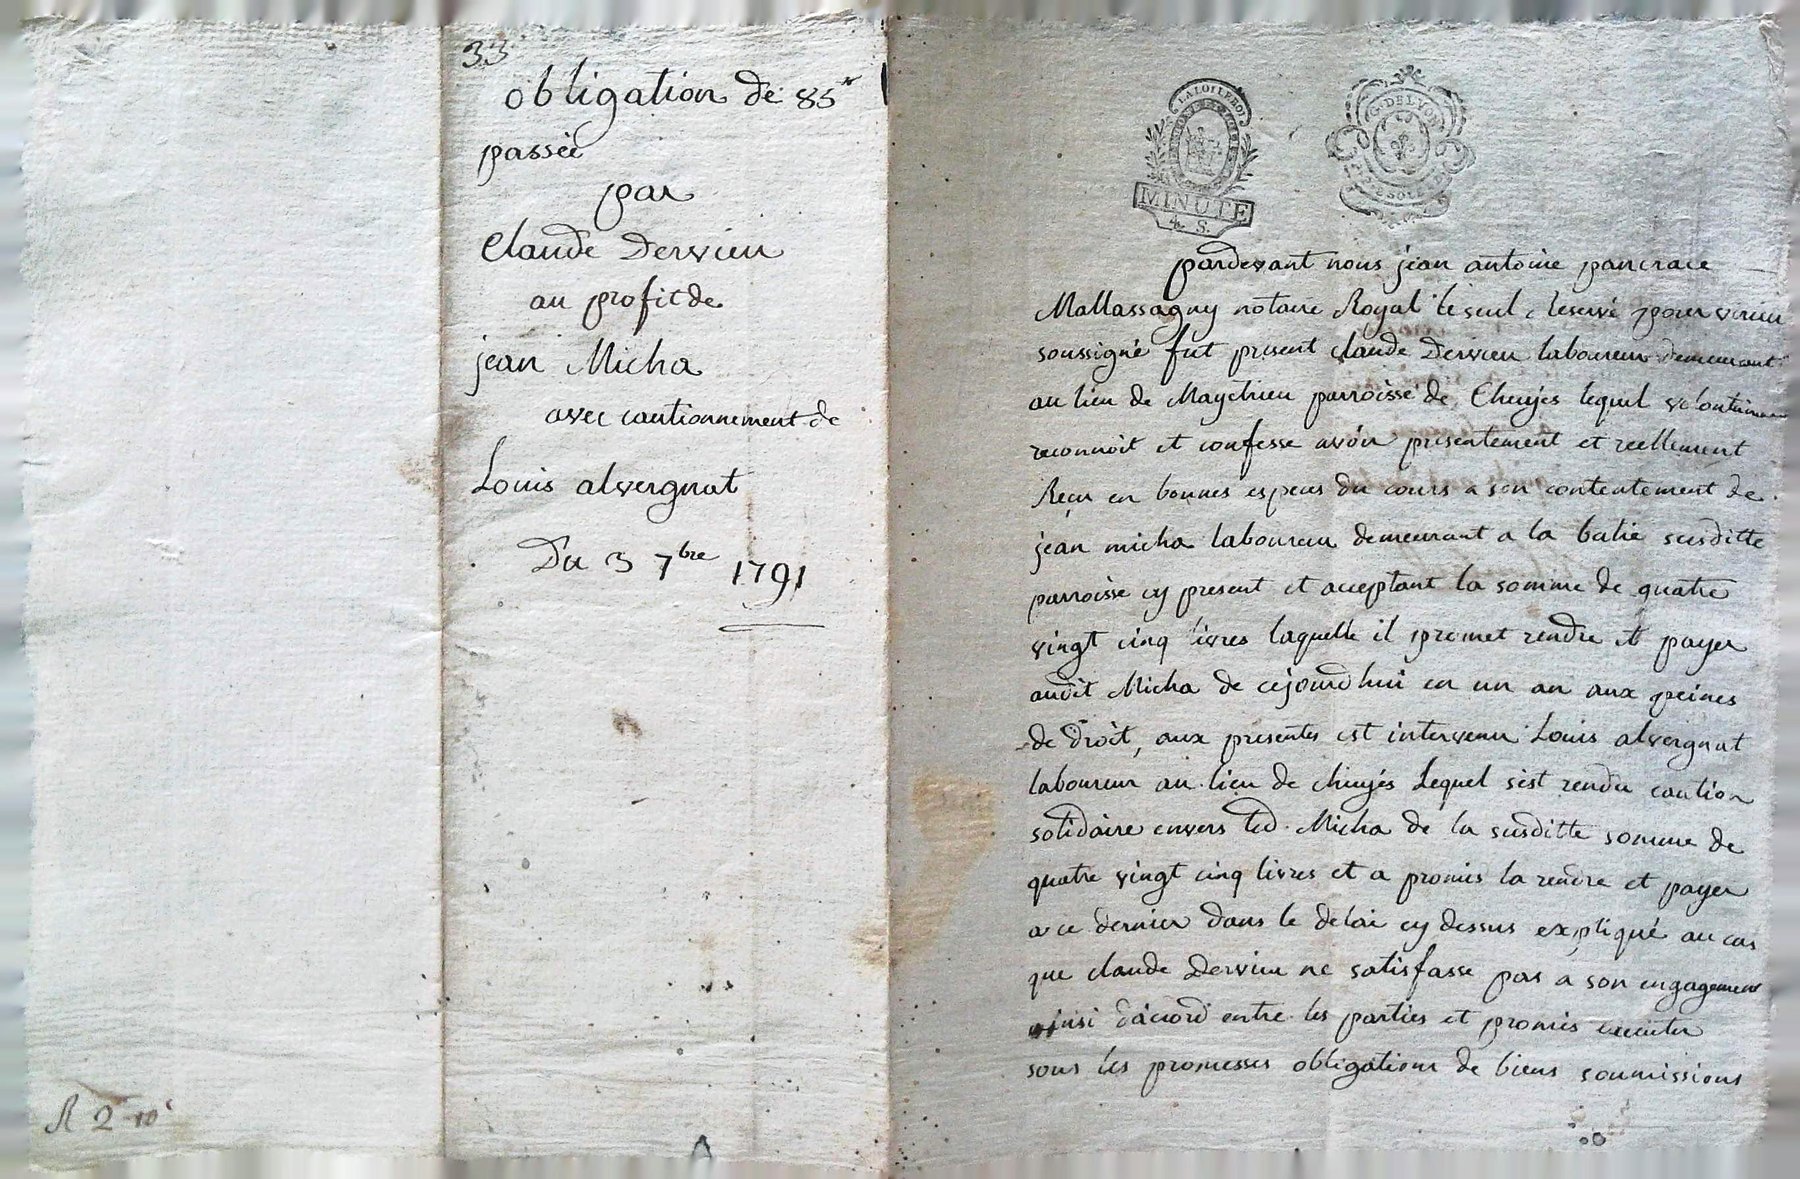 33
obligation de 85
passée
par
Claude Dervieu
au profit de
jean Micha
avec cautionnement de
Louis alvergnat
Du 3 7bre 1791
R 2 10s
LA LOI LE ROI
MINUTE
4. S.
G. DE LYON
pardevant nous jean antoine pancrace
Mallassagny notaire Royal le seul Reservé pour virieu
soussigné fut present claude Dervieu laboureur demeurant
au lieu de paroisse de Chuyés lequel volontairement
reconnoit et confesse avoir presentement et reellement
Reçu en bonnes especes du cours a son contentement de
jean micha laboureur demeurant a la batie susditte
parroisse cy present et acceptant la somme de quatre
vingt cinq livres laquelle il promet rendre et payer
audit Micha de cejourdhui en un an aux peines
de droit, aux presentes est intervenu Louis alvergnat
laboureur au lieu de chuyés Lequel s'est rendu caution
solidaire envers led. Micha de la susditte somme de
quatre vingt cinq livres et a promis la rendre et payer
a ce dernier dans le delai cy dessus expliqué au cas
que claude Dervieu ne satisfasse pas a son engagement
ainsi d'acord entre les parties et promis executer
sous les promesses obligations de biens soumissions